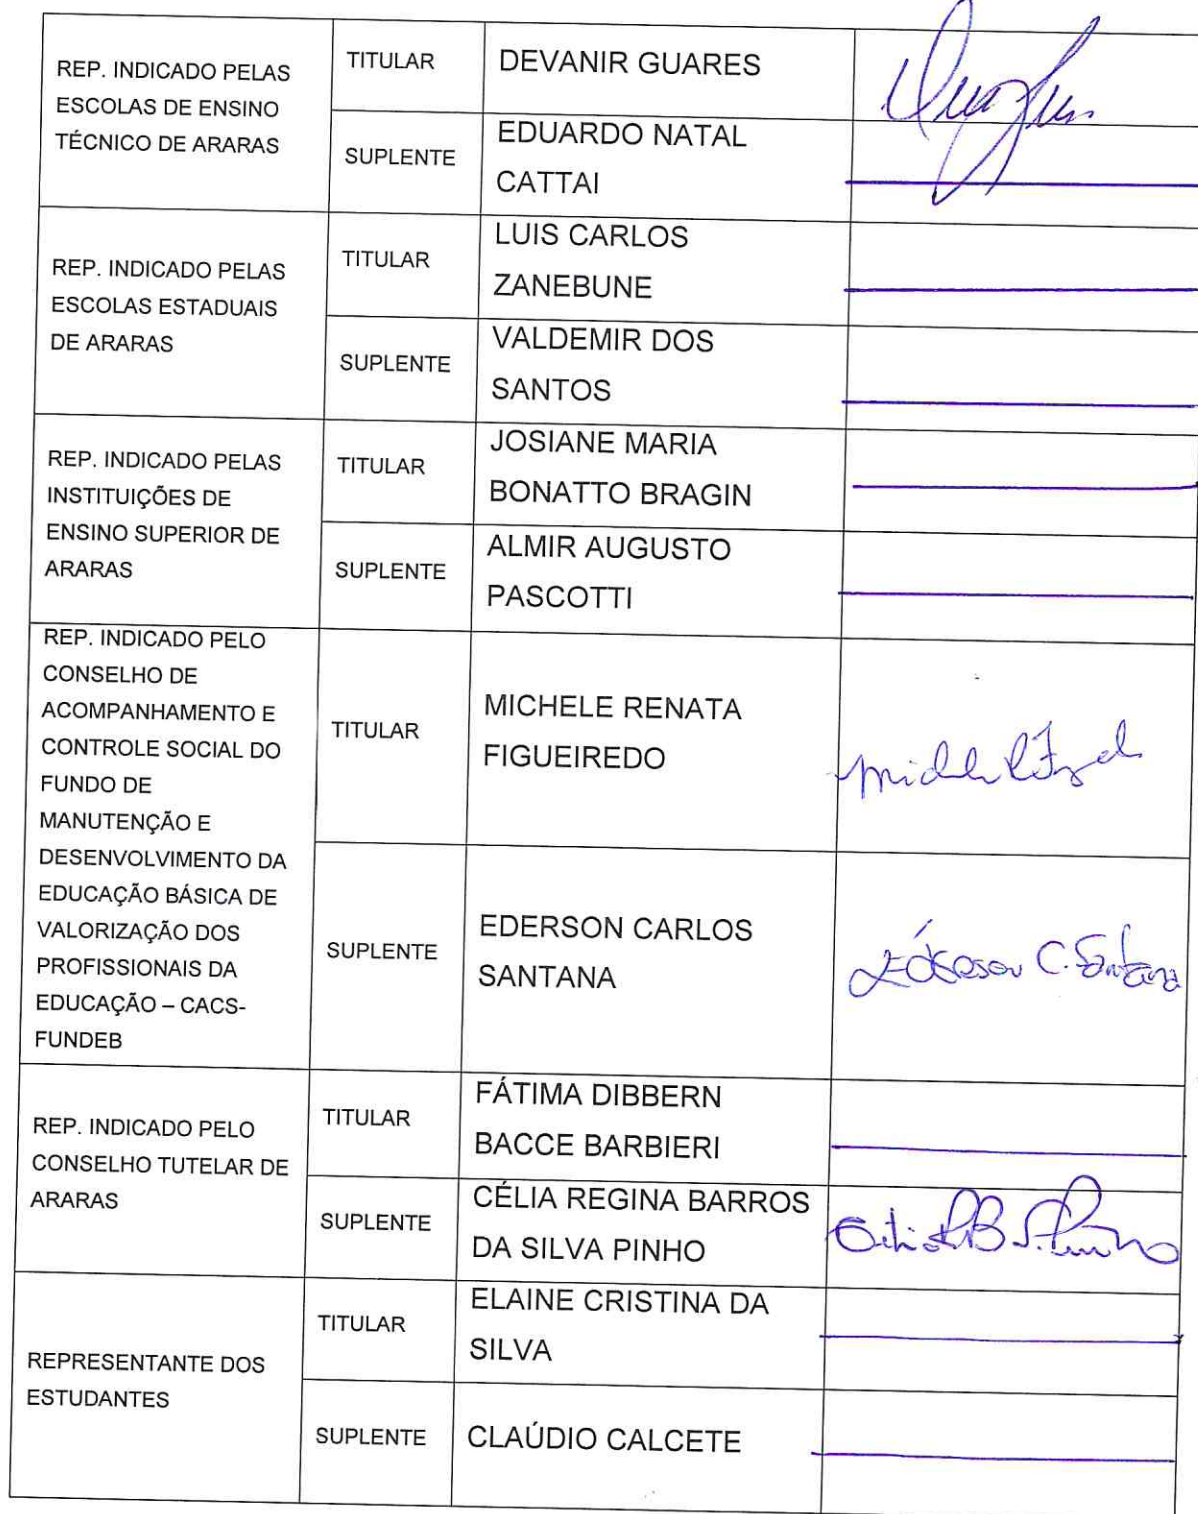 REP. INDICADO PELAS
ESCOLAS DE ENSINO
TÉCNICO DE ARARAS
TITULAR
DEVANIR GUARES
SUPLENTE
EDUARDO NATAL
CATTAI
REP. INDICADO PELAS
ESCOLAS ESTADUAIS
DE ARARAS
TITULAR
LUIS CARLOS
ZANEBUNE
SUPLENTE
VALDEMIR DOS
SANTOS
REP. INDICADO PELAS
INSTITUIÇÕES DE
ENSINO SUPERIOR DE
ARARAS
TITULAR
JOSIANE MARIA
BONATTO BRAGIN
SUPLENTE
ALMIR AUGUSTO
PASCOTTI
REP. INDICADO PELO
CONSELHO DE
ACOMPANHAMENTO E
CONTROLE SOCIAL DO
FUNDO DE
MANUTENÇÃO E
DESENVOLVIMENTO DA
EDUCAÇÃO BÁSICA DE
VALORIZAÇÃO DOS
PROFISSIONAIS DA
EDUCAÇÃO – CACS-
FUNDEB
TITULAR
MICHELE RENATA
FIGUEIREDO
SUPLENTE
EDERSON CARLOS
SANTANA
C. Santana
REP. INDICADO PELO
CONSELHO TUTELAR DE
ARARAS
TITULAR
FÁTIMA DIBBERN
BACCE BARBIERI
SUPLENTE
CÉLIA REGINA BARROS
DA SILVA PINHO
REPRESENTANTE DOS
ESTUDANTES
TITULAR
ELAINE CRISTINA DA
SILVA
SUPLENTE
CLAÚDIO CALCETE